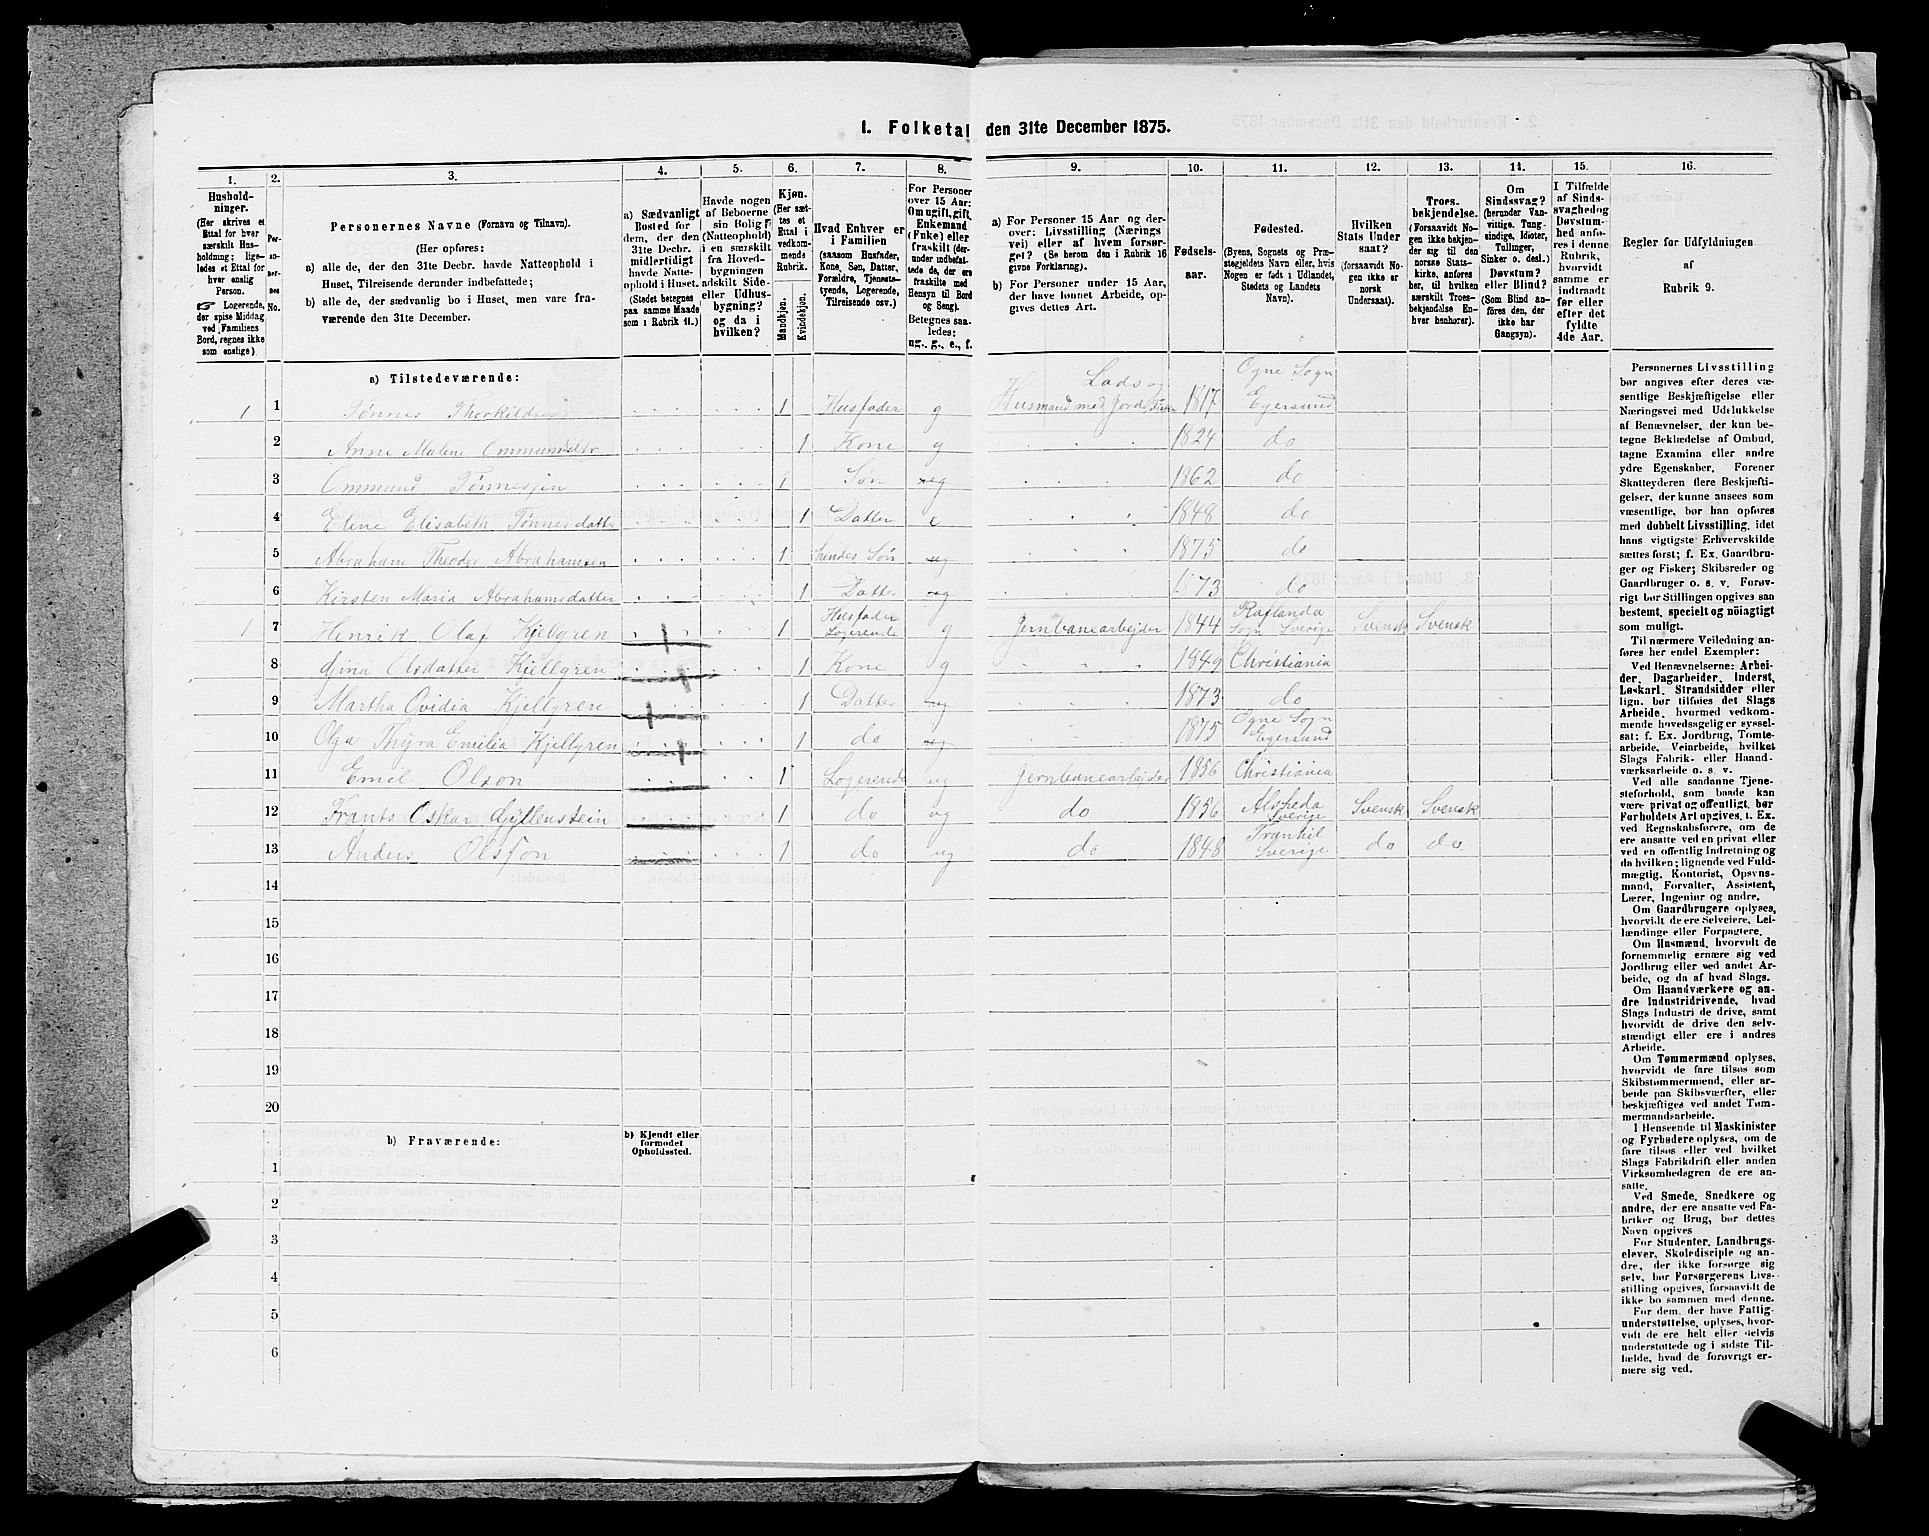 1. Folketal den 31te December 1875.
1. 2. 3. 4. 5. 6. 7. 8. 9. 10. 11. 12. 13. 14. 15. 16.
Hushold-
ninger.
(Her skrives et
Ettal for hver
særskilt Hus-
holdning; lige-
ledes et Ettal for
hver enslig
Person.
☞ Logerende,
der spise Middag
ved Familiens
Bord, regnes ikke
som enslige)
Per-
so-
ner-
nes
No.
Personernes Navne (Fornavn og Tilnavn).
(Her opføres:
a) alle de, der den 31te Decbr. havde Natteophold i
Huset, Tilreisende derunder indbefattede;
b) alle de, der sædvanlig bo i Huset, men vare fra-
værende den 31te December.
a) Sædvanligt
Bosted for
dem, der den
31te Decbr.
midlertidigt
havde Natte-
ophold i Huset.
(Stedet betegnes
paa samme Maade
som i Rubrik 11.)
Havde nogen
af Beboerne
sin Bolig
(Natteophold)
i en særskilt
fra Hoved-
bygningen
adskilt Side-
eller Udhus-
bygning?
og da i
hvilken?
Kjøn.
(Her sæt-
tes et
Ettal i
vedkom-
mende
Rubrik.
Mandkjøn.
Kvindekjøn.
Hvad Enhver er
i Familien
(saasom Husfader,
Kone, Søn, Datter,
Forældre, Tjenests-
tyende, Logerende,
Tilreisende osv.)
For Personer
over 15 Aar:
Om ugift, gift,
Enkemand
(Enke) eller
fraskilt (der-
under indbefat-
tede de, der ere
fraskilte med
Hensyn til Bord
og Seng).
Betegnes saa-
ledes:
ug., g., e., f.
a) For Personer 15 Aar og der-
over: Livsstilling (Nærings-
vei) eller af hvem forsør-
get? (Se herom den i Rubrik 16
givne Forklaring).
b) For Personer under 15 Aar,
der have lønnet Arbeide, op-
gives dettes Art.
Fødsels-
aar.
Fødested.
(Byens, Sognets og Præ-
stegjeldets Navn eller, hvis
Nogen er født i Udlandet,
Stedets og Landets
Navn).
Hvilken
Stats Under
saat?
(forsaavidt No-
gen ikke er
norsk
Undersaat).
Troes-
bekjendelse.
(Forsaavidt No-
gen ikke bekjen-
der sig til den
norske Stats-
kirke, anføres
her, til hvilken
særskilt Troes-
bekjendelse En-
hver henhører).
Om
Sindssvag?
(herunder Van-
vittige, Tung-
sindige, Idioter,
Tullinger,
Sinker o. desl.)
Døvstum?
eller Blind?
(Som Blind an-
føres den, der
ikke har
Gangsyn).
I Tilfælde
af Sinds-
svaghed og
Døvstum-
hed anfø-
res i denne
Rubrik,
hvorvidt
samme er
indtraadt
før eller
efter det
fyldte
4de Aar.
Regler for Udfyldningen
af
Rubrik 9.
a) Tilstedeværende:
1 1 Tønnes Thorkildsen 1 Husfader g Husmand med Jord Lods og 1817 Ogne Sogn Egersund
2 Anne Malene Ommundsdtr 1 Kone g 1824 do
3 Ommund Tønnesjen 1 Søn ug 1862 do
4 Elene Elisabeth Tønnesdatter 1 Datter e 1848 do
5 Abraham Theodor Abrahamsen 1 hendes Søn ug 1875 do
6 Kirsten Maria Abrahamsdatter 1 Datter ug 1873 do
1 7 Henrik Olaf Kjellgren 1 Husfader Logerende g Jernbanearbejder 1844 Sogn Sverige Svensk Svensk
8 Olsdatter Kjellgren 1 Kone g 1849 Christiania
9 Martha Ovidia Kjellgren 1 Datter ug 1873 do
10 Olga Thyra Emilia Kjellgren 1 do ug 1875 Ogne Sogn Egersund
11 Emil Olson 1 Logerende ug Jernbanearbejder 1856 Christiania
12 Frants Oskar Gyllenstein 1 do ug do 1856 Alsheda Sverige Svensk Svensk
13 Anders Olsson 1 do ug do 1848 Sverige do do
14
15
16
17
18
19
20
b) Fraværende:
b) Kjendt eller
formodet
Opholdssted.
1
2
3
4
5
6
Personernes Livsstilling
bør angives efter deres væ-
sentlige Beskjæftigelse eller
Næringsvei med Udelukkelse
af Benævnelser, der kun be-
tegne Beklædelse af Ombud,
tagne Examina eller andre
ydre Egenskaber. Forener
Skatteyderen flere Beskjæfti-
gelser, der kunne ansees som
væsentlige, bør han opføres
med dobbelt Livsstilling, idet
hans vigtigste Erhvervskilde
sættes først; f. Ex. Gaardbru-
ger og Fisker; Skibsreder og
Gaardbruger o. s. v. Forøv-
rigt bør Stillingen opgives saa
bestemt, specielt og nöiagtigt
som muligt.
Til nærmere Veiledning an-
føres her endel Exempler:
Ved Benævnelserne: Arbei-
der, Dagarbeider, Inderst,
Løskarl, Strandsidder eller
lign. bør tilføies det Slags
Arbeide, hvormed vedkom-
mende hovedsagelig er syssel-
sat; f. Ex. Jordbrug, Tomte-
arbeide, Veiarbeide, hvilket
Slags Fabrik- eller Haand-
værksarbeide o. s. v.
Ved alle saadanne Tjene-
steforhold, som baade kan
være privat og offentligt, bør
Forholdets Art opgives, t. Ex.
ved Regnskabsførere, om de
ere ansatte ved en privat eller
ved en offentlig Indretning og
da hvilken; lignende ved Fuld-
mægtig, Kontorist, Opsyns-
mand, Forvalter, Assistent,
Lærer, Ingeniør og andre.
Om Gaardbrugere oplyses,
hvorvidt de ere Selveiere, Lei-
lændinge eller Forpagtere.
Om Husmænd, hvorvidt de
fornemmelig ernære sig ved
Jordbrug eller ved andet Ar-
beide, og da af hvad Slags.
Om Haandværkere og an-
dre Industridrivende, hvad
Slags Industri de drive, samt
hvorvidt de drive den selv-
stændigt eller ere i andres
Arbeide.
Om Tømmermænd oplyses,
hvorvidt de fare tilsøs som
Skibstømmermænd, eller ar-
beide paa Skibsværfter, eller
beskjæftiges ved andet Tøm-
mermandsarbeide.
I Henseende til Maskinister
og Fyrbødere oplyses, om de
fare tilsøs eller ved hvilket
Slags Fabrikdrift eller anden
Virksomhedsgren de ere an-
satte.
Ved Smede, Snedkere og
andre, der ere ansatte ved Fa-
briker og Brug, bør dettes
Navn opgives
For Studenter, Landbrugs-
elever, Skoledisciple og an-
dre, der ikke forsørge sig
selv, bør Forsørgerens Livs-
stilling opgives, forsaavidt de
ikke bo sammen med denne.
For dem, der have Fattig-
understøttelse, oplyses, hvor-
vidt de ere helt eller delvis
understøttede og i sidste Til-
fælde, hvad de forøvrigt er-
nære sig ved.